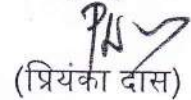 (प्रियंका दास)